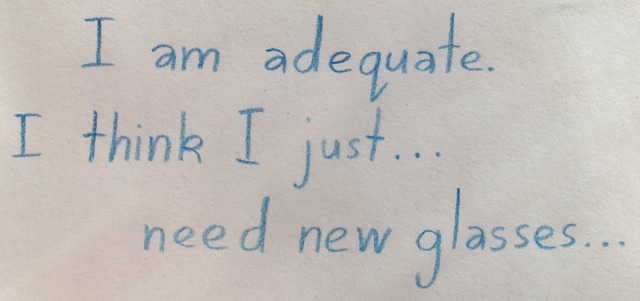 I am adequate.
I think I just...
need new glasses...